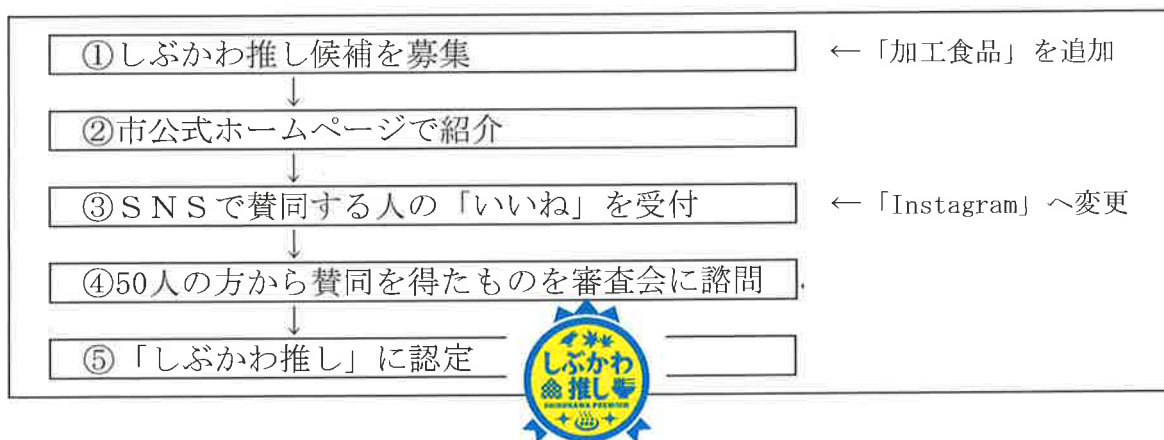 ①しぶかわ推し候補を募集
←「加工食品」を追加
↓
②市公式ホームページで紹介
↓
③ＳＮＳで賛同する人の「いいね」を受付
←「Instagram」へ変更
↓
④50人の方から賛同を得たものを審査会に諮問
↓
⑤「しぶかわ推し」に認定
しぶかわ
推し
SHIBUKAWA PREMIUM